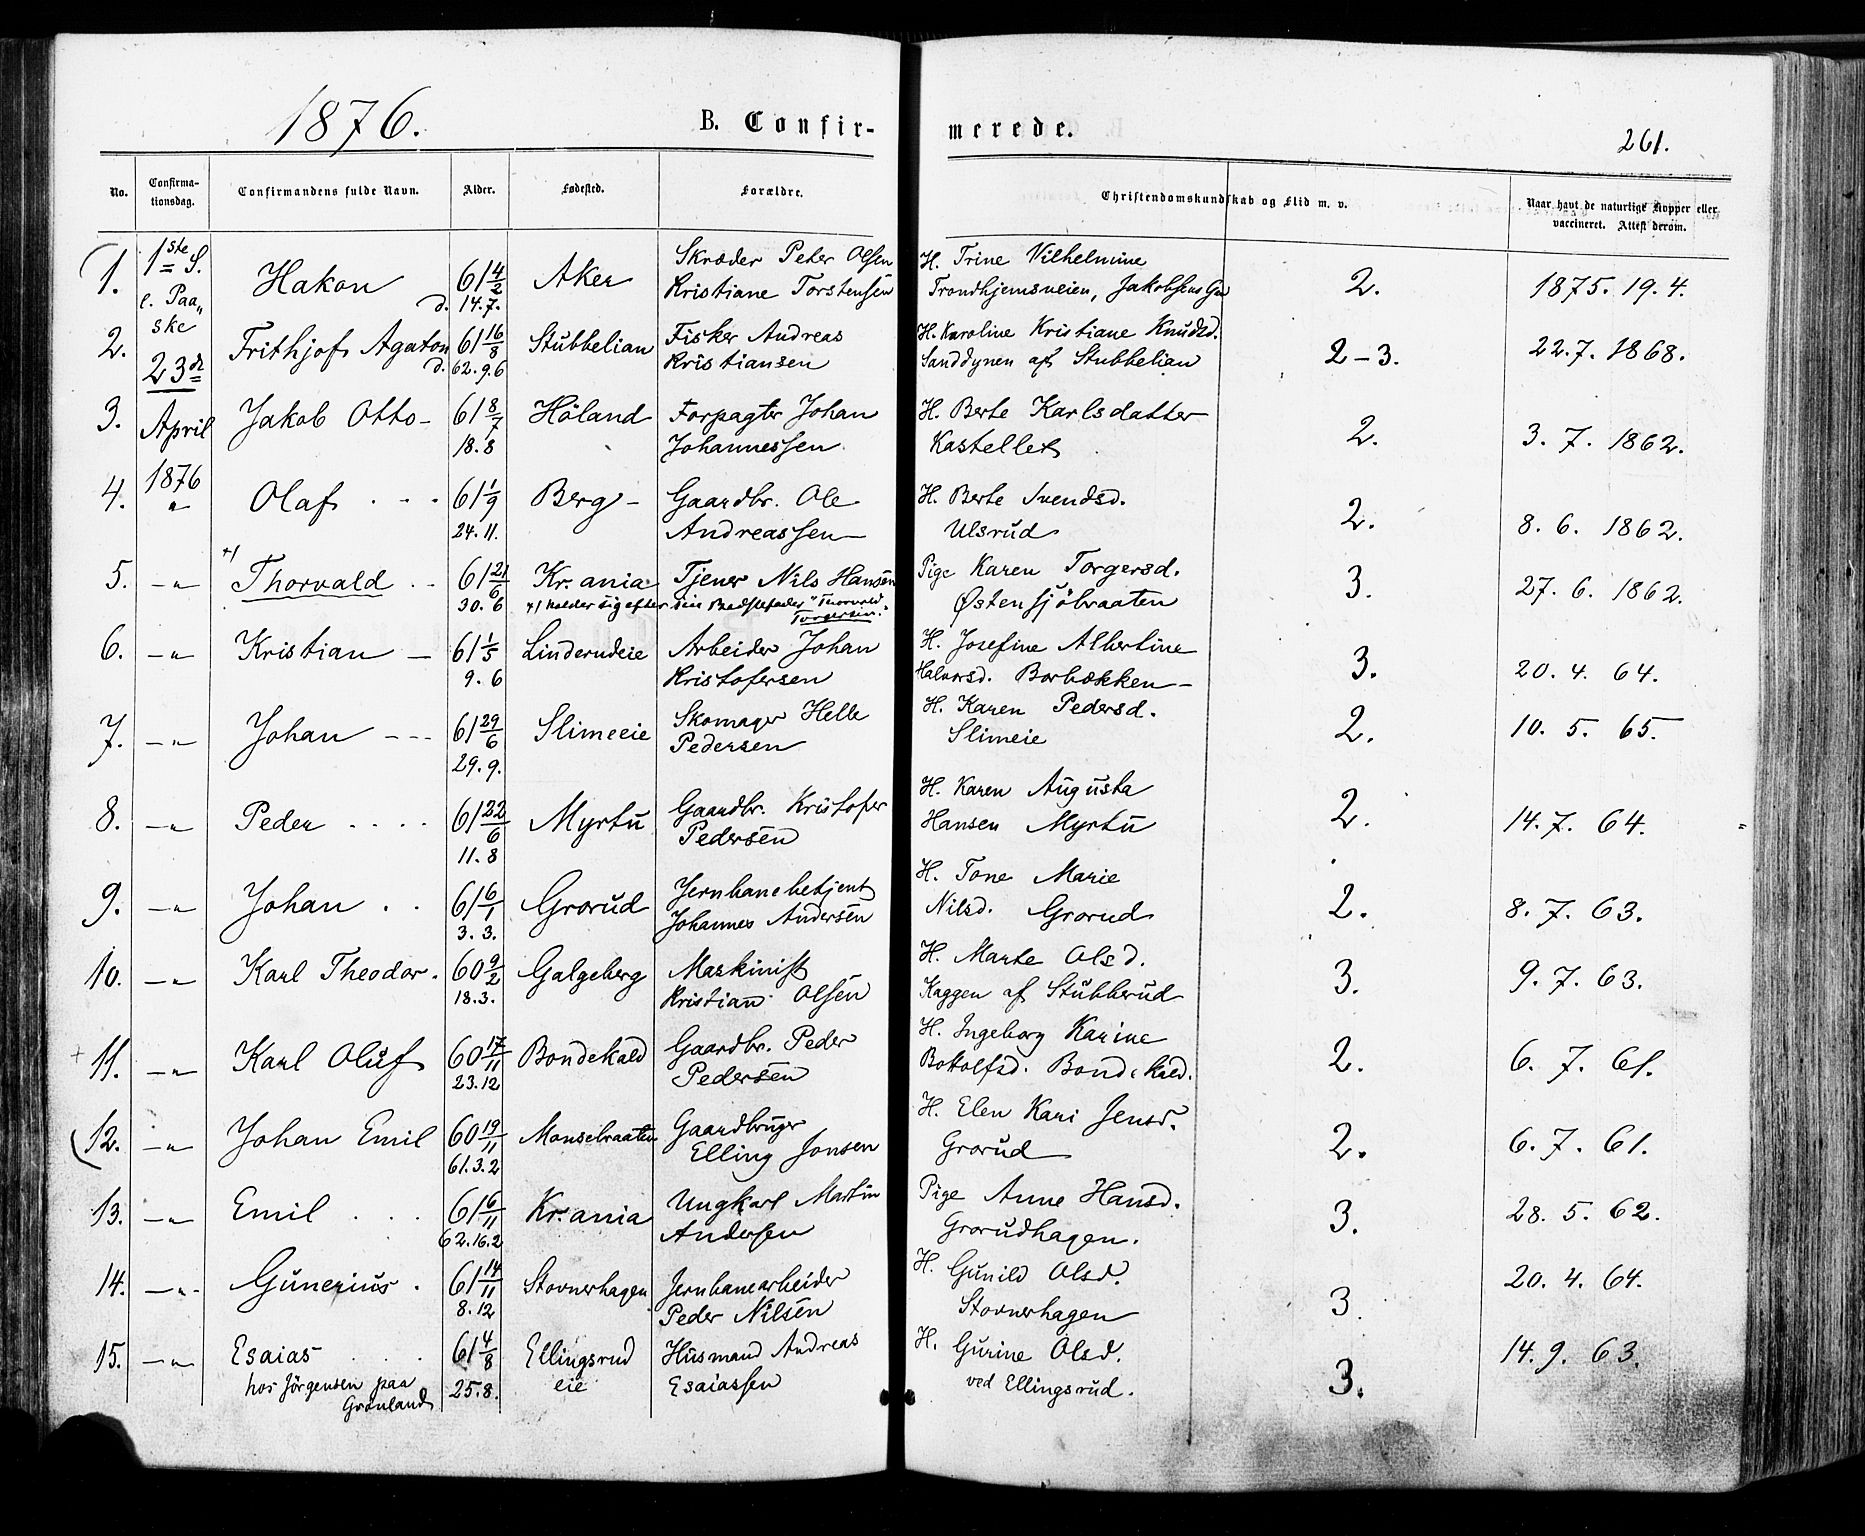 1876.
B. Confir-
merede.
261.
No.
Confirma-
tionsdag.
Confirmandens fulde Navn.
Alder.
Fødested.
Forældre.
Christendomskundskab og Flid m. v.
Naar havt de naturlige Kopper eller
vaccineret. Attest derom.
1ste S.
e. Paa„
ske
23de
April
1876
1. Hakon 61 4/2 Aker Skræder Peter Olsen H. Trine Vilhelmine 2. 1875. 19. 4.
d. 14.7. Kristiane Torstensen Trondhjemsveien, Jakobsens Grd
2. Frithjof Agaton 61 16/8 Stubbelian Fisker Andreas H. Karoline Kristiane Knudsd. 2-3. 22. 7. 1868.
d. 62. 9. 6 Kristiansen Sanddynen af Stubbelian
3. Jakob Otto - 61 8/7 Höland Forpagter Johan H. Berte Karlsdatter 2. 3. 7. 1862.
18. 8 Johannessen Kastellet
4. " Olaf 61 1/9 Berg - Gaardbr. Ole H. Berte Svendsd. 2. 8. 6. 1862.
24. 11. Andreassen Ulsrud
5. -"- +/ Thorvald 61 21/6 Kr.ania Tjener Nils Hansen Pige Karen Torgersd. 3. 27. 6. 1862.
30. 6 +/ kalder sig efter sin Bedstefader "Thorvald Torgersen." Østensjöbraaten
6. -"- Kristian - 61 1/5 Linderudeie Arbeider Johan H. Josefine Albertine 3. 20. 4. 64.
9. 6 Kristofersen Halvorsd. Borbækken -
7. -"- Johan --- 61 29/6 Slimeeie Skomager Helle H. Karen Pedersd. 2. 10. 5. 65.
29. 9. Pedersen Slimeie
8. -"- Peder .... 61 22/6 Myrtu Gaardbr. Kristofer H. Karen Augusta 2. 14. 7. 64.
11. 8 Pedersen Hansen Myrtu
9. -"- Johan . . 61 6/1 Grorud Jernbanebetjent H. Tone Marie 2. 8. 7. 63.
3. 3. Johannes Andersen Nilsd. Grorud
10. -"- Karl Theodor. 60 9/2 Galgeberg Maskinist H. Marte Olsd. 3. 9. 7. 63.
18. 3. Kristian Olsen Kaggen af Stubberud
+ 11. -"- Karl Oluf 60 17/11 Bondekald Gaardbr. Peder H. Ingeborg Karine 2. 6. 7. 61.
23. 12 Pedersen Botolfsd. Bondekald.
12. -"- Johan Emil 60 19/11 Monsebraaten Gaardbruger H. Elen Kari Jensd. 2. 6. 7. 61.
61. 3. 2 Elling Jonsen Grorud
13. -"- Emil . . . 61 6/11 Kr.ania Ungkarl Martin Pige Anne Hansd. 3. 28. 5. 62.
62. 16. 2 Andersen Grorudhagen.
14. -"- Gunerius . 61 14/11 Stovnerhagen Jernbanearbeider H. Gunild Olsd. 3. 20. 4. 64.
8. 12 Peder Nilsen Stovnerhagen
15. -"- Esaias .... 61 4/8 Ellingsrud Husmand Andreas H. Gurine Olsd. 3. 14. 9. 63.
hos Jörgensen paa Grønland 25. 8. eie Esaiassen ved Ellingsrud.